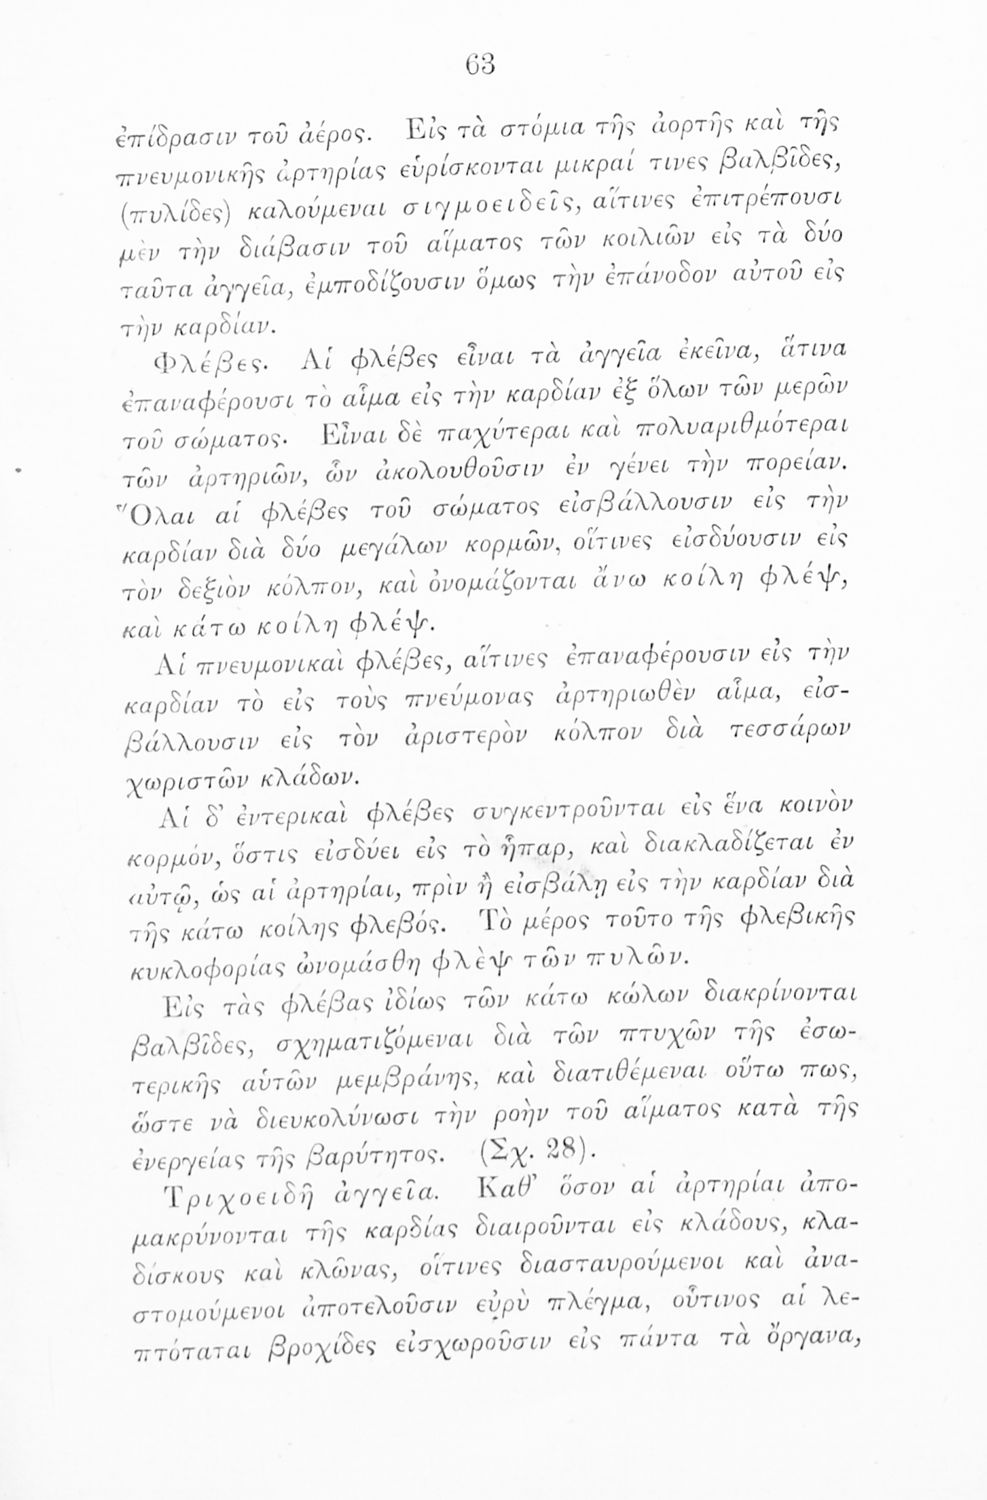 63
ἐπίδρασιν τοῦ ἀέρος. Εἰς τὰ στόμια τῆς ἀορτῆς καὶ τῆς
πνευμονικῆς ἀρτηρίας εὑρίσκονται μικραί τινες βαλβῖδες,
(πυλίδες) καλούμεναι σιγμοειδεῖς, αἵτινες ἐπιτρέπουσι
μὲν τὴν διάβασιν τοῦ αἵματος τῶν κοιλιῶν εἰς τὰ δύο
ταῦτα ἀγγεῖα, ἐμποδίζουσιν ὅμως τὴν ἐπάνοδον αὐτοῦ εἰς
τὴν καρδίαν.
Φλέβες. Αἱ φλέβες εἶναι τὰ ἀγγεῖα ἐκεῖνα, ἅτινα
ἐπαναφέρουσι τὸ αἷμα εἰς τὴν καρδίαν ἐξ ὅλων τῶν μερῶν
τοῦ σώματος. Εἶναι δὲ παχύτεραι καὶ πολυαριθμότεραι
τῶν ἀρτηριῶν, ὧν ἀκολουθοῦσιν ἐν γένει τὴν πορείαν.
Ὅλαι αἱ φλέβες τοῦ σώματος εἰσβάλλουσιν εἰς τὴν
καρδίαν διὰ δύο μεγάλων κορμῶν, οἵτινες εἰσδύουσιν εἰς
τὸν δεξιὸν κόλπον, καὶ ὀνομάζονται ἄνω κοίλη φλέψ,
καὶ κάτω κοίλη φλέψ.
Αἱ πνευμονικαὶ φλέβες, αἵτινες ἐπαναφέρουσιν εἰς τὴν
καρδίαν τὸ εἰς τοὺς πνεύμονας ἀρτηριωθὲν αἷμα, εἰσ-
βάλλουσιν εἰς τὸν ἀριστερὸν κόλπον διὰ τεσσάρων
χωριστῶν κλάδων.
Αἱ δ’ ἐντερικαὶ φλέβες συγκεντροῦνται εἰς ἕνα κοινὸν
κορμόν, ὅστις εἰσδύει εἰς τὸ ἧπαρ, καὶ διακλαδίζεται ἐν
αὐτῷ, ὡς αἱ ἀρτηρίαι, πρὶν ἢ εἰσβάλῃ εἰς τὴν καρδίαν διὰ
τῆς κάτω κοίλης φλεβός. Τὸ μέρος τοῦτο τῆς φλεβικῆς
κυκλοφορίας ὠνομάσθη φλὲψ τῶν πυλῶν.
Εἰς τὰς φλέβας ἰδίως τῶν κάτω κώλων διακρίνονται
βαλβῖδες, σχηματιζόμεναι διὰ τῶν πτυχῶν τῆς ἐσω-
τερικῆς αὑτῶν μεμβράνης, καὶ διατιθέμεναι οὕτω πως,
ὥστε νὰ διευκολύνωσι τὴν ροὴν τοῦ αἵματος κατὰ τῆς
ἐνεργείας τῆς βαρύτητος. (Σχ. 28).
Τριχοειδῆ ἀγγεῖα. Καθ’ ὅσον αἱ ἀρτηρίαι ἀπο-
μακρύνονται τῆς καρδίας διαιροῦνται εἰς κλάδους, κλα-
δίσκους καὶ κλῶνας, οἵτινες διασταυρούμενοι καὶ ἀνα-
στομούμενοι ἀποτελοῦσιν εὐρὺ πλέγμα, οὗτινος αἱ λε-
πτόταται βροχίδες εἰσχωροῦσιν εἰς πάντα τὰ ὄργανα,